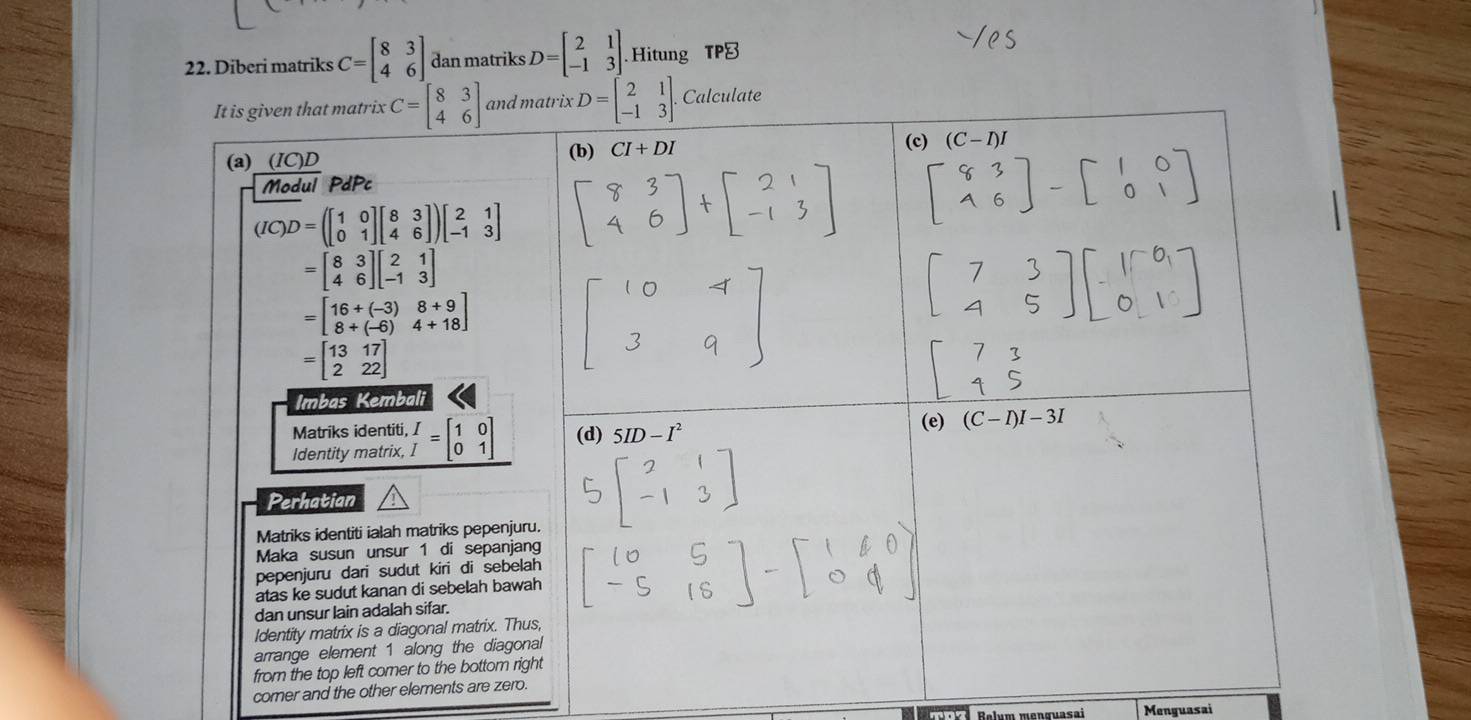 Yes
22. Diberi matriks C = [8 3; 4 6] dan matriks D = [2 1; -1 3]. Hitung TP3
It is given that matrix C = [8 3; 4 6] and matrix D = [2 1; -1 3]. Calculate
(a) (IC)D
Modul PdPc
(IC)D = ([1 0; 0 1][8 3; 4 6])[2 1; -1 3]
= [8 3; 4 6][2 1; -1 3]
= [16 + (-3) 8 + 9; 8 + (-6) 4 + 18]
= [13 17; 2 22]
Imbas Kembali
Matriks identiti, I
Identity matrix, I = [1 0; 0 1]
Perhatian
Matriks identiti ialah matriks pepenjuru.
Maka susun unsur 1 di sepanjang
pepenjuru dari sudut kiri di sebelah
atas ke sudut kanan di sebelah bawah
dan unsur lain adalah sifar.
Identity matrix is a diagonal matrix. Thus,
arrange element 1 along the diagonal
from the top left corner to the bottom right
corner and the other elements are zero.
(b) CI + DI
[8 3; 4 6] + [2 1; -1 3]
[10 4; 3 9]
(c) (C – I)I
[8 3; 4 6] - [1 0; 0 1]
[7 3; 4 5][1 0; 0 1]
[7 3; 4 5
(d) 5ID – I²
5[2 1; -1 3]
[10 5; -5 15] - [1 0; 0 1]
(e) (C – I)I – 3I
Belum menguasai
Menguasai